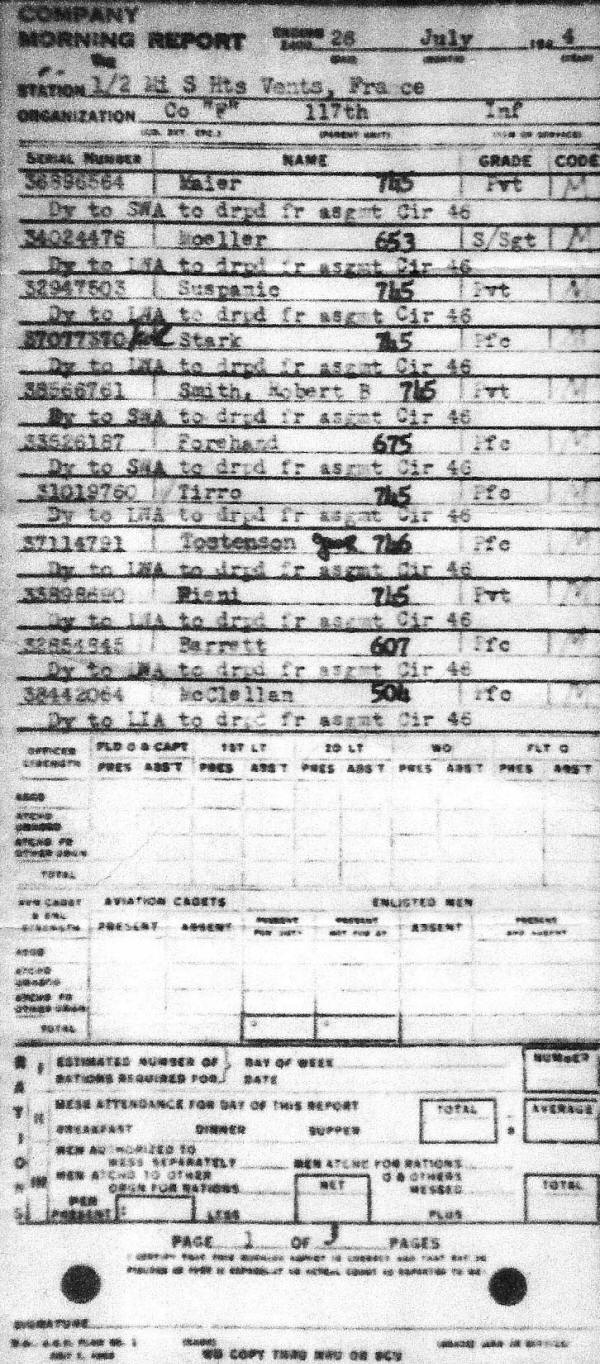 COMPANY
MORNING REPORT ENDING 26 July 194 4
STATION 1/2 Mi S Hts Vents, France
ORGANIZATION Co "F" 117th Inf
SERIAL NUMBER NAME GRADE CODE
36896564 Maier 745 Pvt M
Dy to SWA to drpd fr asgmt Cir 46
34024476 Moeller 653 S/Sgt M
Dy to LWA to drpd fr asgmt Cir 46
32947503 Suspanic 745 Pvt
Dy to LWA to drpd fr asgmt Cir 46
37077370 Stark 745 Pfc
Dy to LWA to drpd fr asgmt Cir 46
38566761 Smith, Robert B 745 Pvt
Dy to SWA to drpd fr asgmt Cir 46
33526187 Forehand 675 Pfc
Dy to SWA to drpd fr asgmt Cir 46
31019760 Tirro 745 Pfc
Dy to LWA to drpd fr asgmt Cir 46
37114791 Tostenson 746 Pfc
Dy to LWA to drpd fr asgmt Cir 46
33898690 745 Pvt
Dy to LWA to drpd fr asgmt Cir 46
Barrett 607 Pfc
Dy to LWA to drpd fr asgmt Cir 46
38442064 McClellan 504 Pfc
Dy to LIA to drpd fr asgmt Cir 46
OFFICER STRENGTH FLD O & CAPT 1ST LT 2D LT WO FLT O
PRES ABS'T PRES ABS'T PRES ABS'T PRES ABS'T PRES ABS'T
ASGD
ATCHD UNASGD
ATCHD FR OTHER ORGN
TOTAL
AVN CADET & ENL STRENGTH AVIATION CADETS ENLISTED MEN
PRESENT ABSENT PRESENT FOR DUTY PRESENT NOT FOR DY ABSENT PRESENT AND ABSENT
ASGD
ATCHD UNASGD
ATCHD FR OTHER ORGN
TOTAL
RATIONS
I ESTIMATED NUMBER OF RATIONS REQUIRED FOR DAY OF WEEK DATE NUMBER
II MESS ATTENDANCE FOR DAY OF THIS REPORT TOTAL AVERAGE
BREAKFAST DINNER SUPPER
III MEN AUTHORIZED TO MESS SEPARATELY MEN ATCHD FOR RATIONS
MEN ATCHD TO OTHER ORGN FOR RATIONS NET O & OTHERS MESSED TOTAL
MEN PRESENT LESS PLUS
PAGE 1 OF 3 PAGES
I CERTIFY THAT THIS MORNING REPORT IS CORRECT
SIGNATURE
WD COPY THRU MRU OR SCU